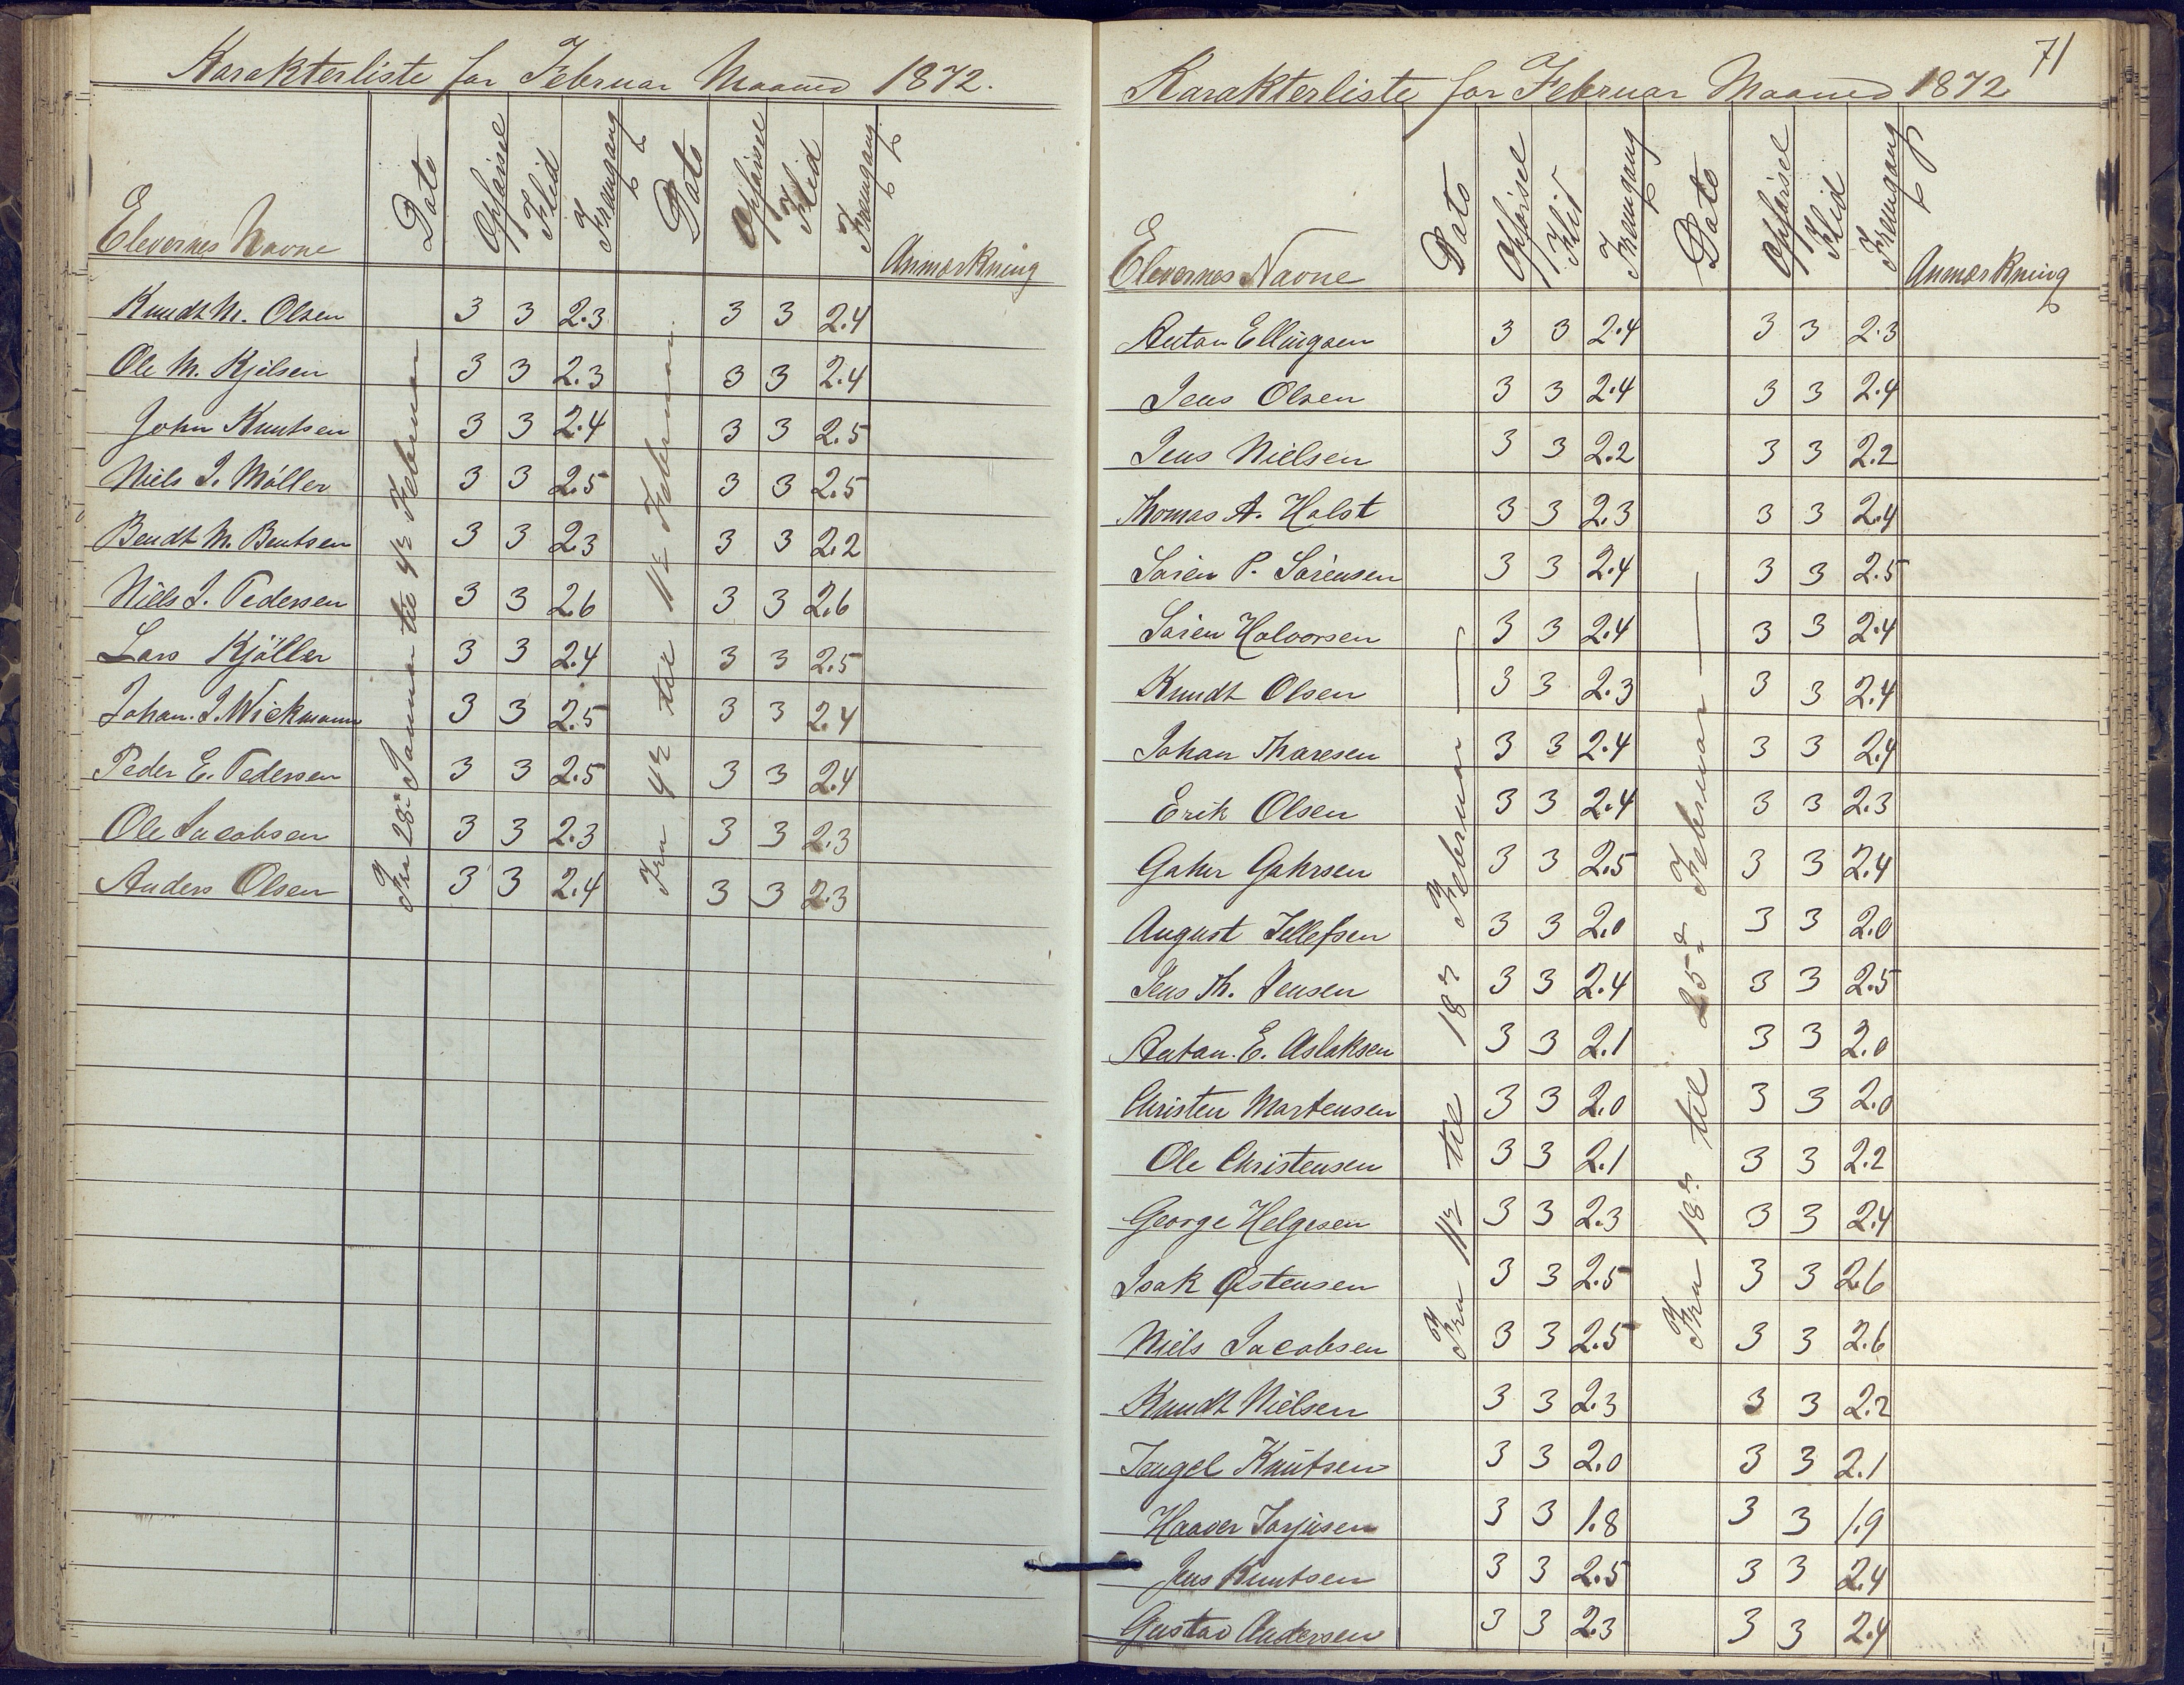 Karakterliste for Februar Maaned 1872.
Elevernes Navne Dato Opførsel Flid Fremgang Dato Opførsel Flid Fremgang Anmærkning
Fra 28: Januar til 4de Februar
Fra 4de til 11te Februar
Knudt M. Olsen 3 3 2.3 3 3 2.4
Ole M. Kjelsen 3 3 2.3 3 3 2.4
John Knutsen 3 3 2.4 3 3 2.5
Niels J. Møller 3 3 2.5 3 3 2.5
Bendt M. Bentsen 3 3 2.3 3 3 2.2
Niels J. Pedersen 3 3 2.6 3 3 2.6
Lars Kjøller 3 3 2.4 3 3 2.5
Johan. J. Wickmann 3 3 2.5 3 3 2.4
Peder E. Pedersen 3 3 2.5 3 3 2.4
Ole Jacobsen 3 3 2.3 3 3 2.3
Anders Olsen 3 3 2.4 3 3 2.3
71
Karakterliste for Februar Maaned 1872
Elevernes Navne Dato Opførsel Flid Fremgang Dato Opførsel Flid Fremgang Anmærkning
Fra 11te til 18de Februar —
Fra 18de til 25de Februar —
Anton Ellingsen 3 3 2.4 3 3 2.3
Jens Olsen 3 3 2.4 3 3 2.4
Jens Nielsen 3 3 2.2 3 3 2.2
Thomas A. Holst 3 3 2.3 3 3 2.4
Søren P. Sørensen 3 3 2.4 3 3 2.5
Søren Halvorsen 3 3 2.4 3 3 2.4
Knudt Olsen 3 3 2.3 3 3 2.4
Johan Tharesen 3 3 2.4 3 3 2.4
Erik Olsen 3 3 2.4 3 3 2.3
Gaher Gahrsen 3 3 2.5 3 3 2.4
August Tellefsen 3 3 2.0 3 3 2.0
Jens Th. Jensen 3 3 2.4 3 3 2.5
Anton. E. Aslaksen 3 3 2.1 3 3 2.0
Christen Mortensen 3 3 2.0 3 3 2.0
Ole Christensen 3 3 2.1 3 3 2.2
George Helgesen 3 3 2.3 3 3 2.4
Isak Østensen 3 3 2.5 3 3 2.6
Niels Jacobsen 3 3 2.5 3 3 2.6
Knudt Nielsen 3 3 2.3 3 3 2.2
Tengel Knutsen 3 3 2.0 3 3 2.1
Haaver Torjusen 3 3 1.8 3 3 1.9
Jens Knutsen 3 3 2.5 3 3 2.4
Gustav Andersen 3 3 2.3 3 3 2.4